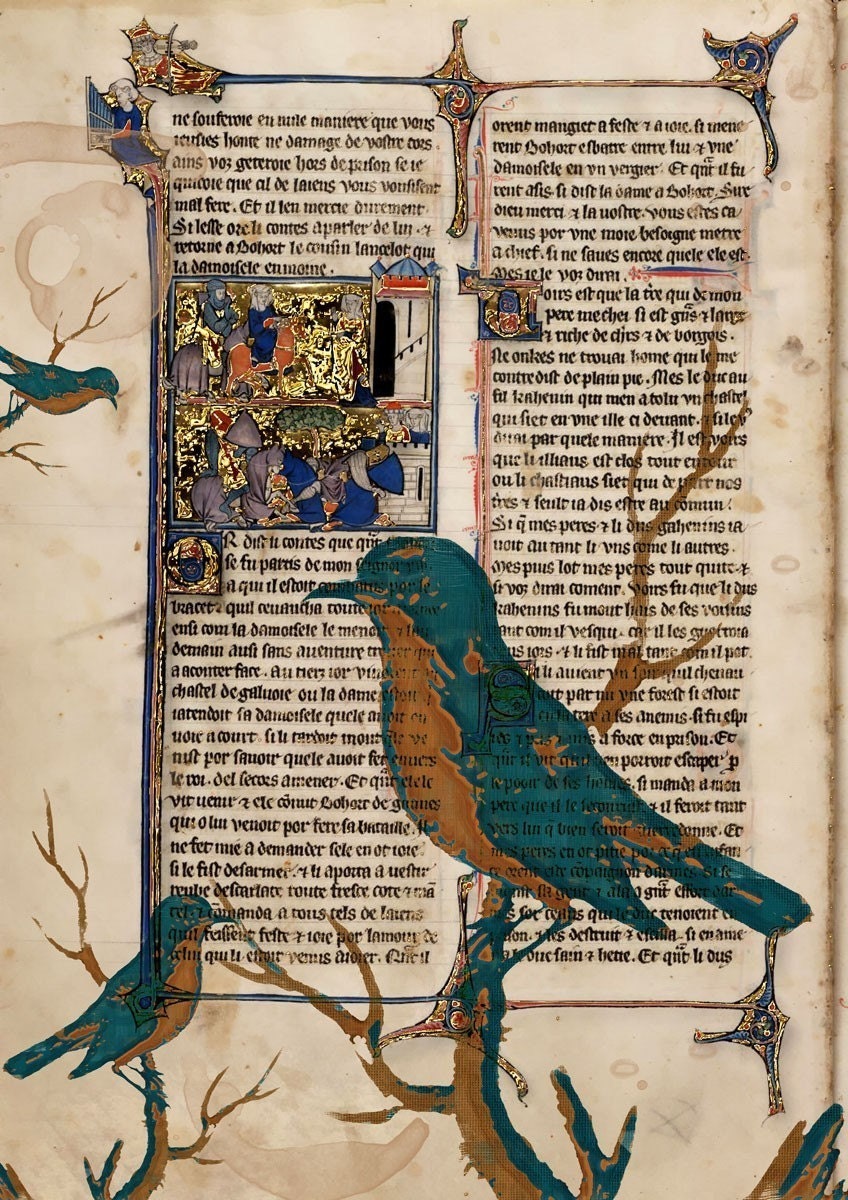 ne souferoie en nule maniere que vous
eusies honte ne damage de vostre cors
ains voz geteroie hors de prison se ie
quidoie que cil de laiens vous vousissent
mal fere. Et il len mercie durement.
Si lesse ore li contes a parler de lui. &
retorne a Bohort le cousin lancelot qui
la damoisele enmoine.
OR dist li contes que qnt
se fu partis de mon seignor
a qui il estoit combatus por le
bracet & quil cevaucha toute ior
ensi com la damoisele le menoit & lan
demain ausi sans aventure trover qui
a aconter face. Au tierz ior vindrent
chastel de galvoie ou la dame estoit
iatendoit sa damoisele quele avoit en
voie a court. si li tardoit moult
nist por savoir quele avoit fet envers
le roi. del secors amener. Et qnt ele le
vit venir & ele conut Bohort de gaunes
qui o lui venoit por fere sa bataille. Il
ne fet mie a demander sele en ot ioie
si le fist desarmer. & li aporta a vestir
reube descarlate toute fresce cote & man
tel. & comanda a tous cels de laiens
quil feissent feste & ioie por lamour de
celui qui li estoit venus aidier. Qnt il
orent mangiet a feste & a ioie. si mene
rent Bohort esbatre entre lui & une
damoisele en un vergier. Et qnt il fu
rent asis. si dist la dame a Bohort. Sire
dieu merci & la vostre. vous estes ca
venus por une moie besoigne metre
a chief. si ne saves encore quele ele est.
Mes ie le voz dirai.
Voirs est que la tre qui de mon
pere me chei si est gras & large
& riche de chrs & de borgois.
Ne onkes ne trouai home qui le me
contredist de plain pie. Mes le duc au
fu kahenin qui men a tolu un chastel
qui siet en une ille ci devant. & si ley
dirai par quele maniere. Il est voirs
que li illiaus est clos tout entour
ou li chastiaus siet qui de part nos
tres & seult ia dis estre au comun.
Si q mes peres & li dus gahenins ia
voit autant li uns come li autres.
Mes puis lot mes peres tout quite. &
si voz dirai coment. Voirs fu que li dus
kahenins fu mout hais de ses voisins
tant com il vesqui. car il les guerroia
tous iors. & li fist mal tant com il pot.
li avient un ior quil chevau
coit par mi une forest si estoit
en la tere a les anemis. si fu espi
es & pris & mis a force en prison. Et
qnt il vit quil nen porroit escaper p
le pooir de ses homes. si manda a mon
pere que il le secourust & il feroit tant
vers lui q bien seroit guerredonne. Et
mes peres en ot pitie por ce qil
orent este compaignon darmes. Si se
sa gent & ala o gnt effort
sor ceaus qui le duc tenoient en
prison. & les destruit & essilla. si en ame
na le duc sain & hetie. Et qnt li dus